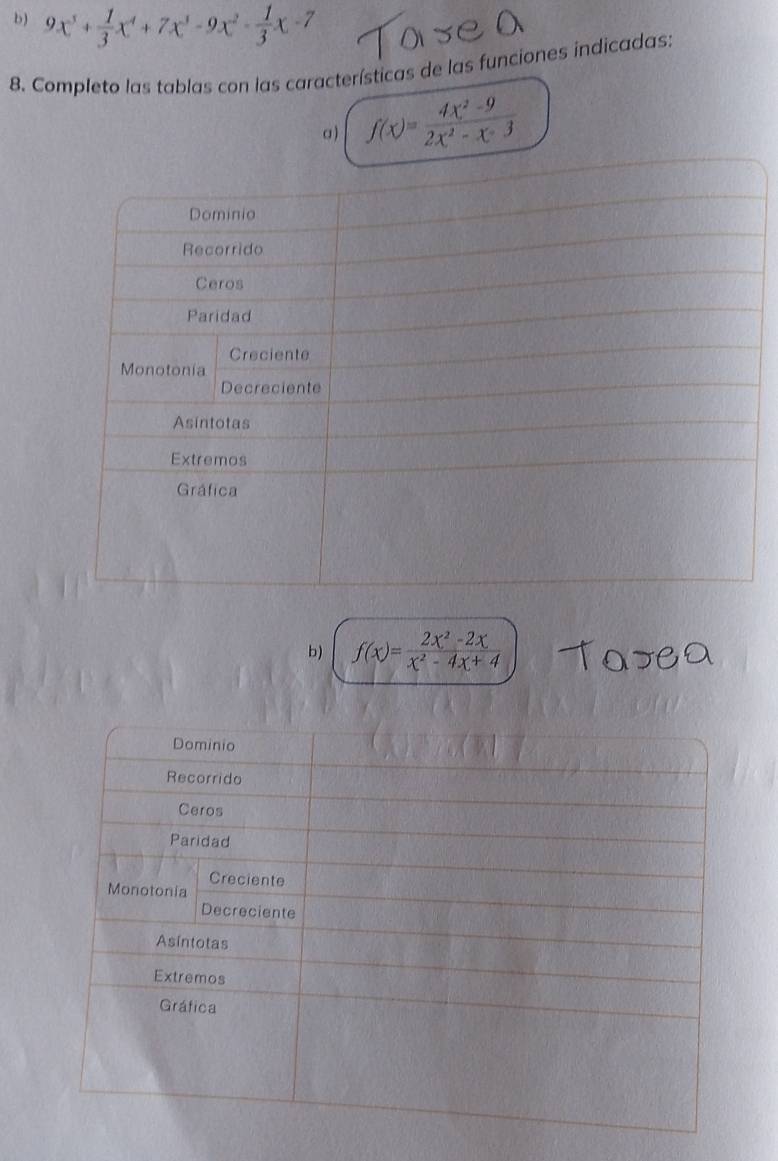 b) 9x⁵ + 1/3 x⁴ + 7x³ - 9x² - 1/3 x - 7 Tarea
8. Completo las tablas con las características de las funciones indicadas:
a) f(x) = (4x² - 9)/(2x² - x - 3)
Dominio
Recorrido
Ceros
Paridad
Monotonía
Creciente
Decreciente
Asíntotas
Extremos
Gráfica
b) f(x) = (2x² - 2x)/(x² - 4x + 4) Tarea
Dominio
Recorrido
Ceros
Paridad
Monotonía
Creciente
Decreciente
Asíntotas
Extremos
Gráfica